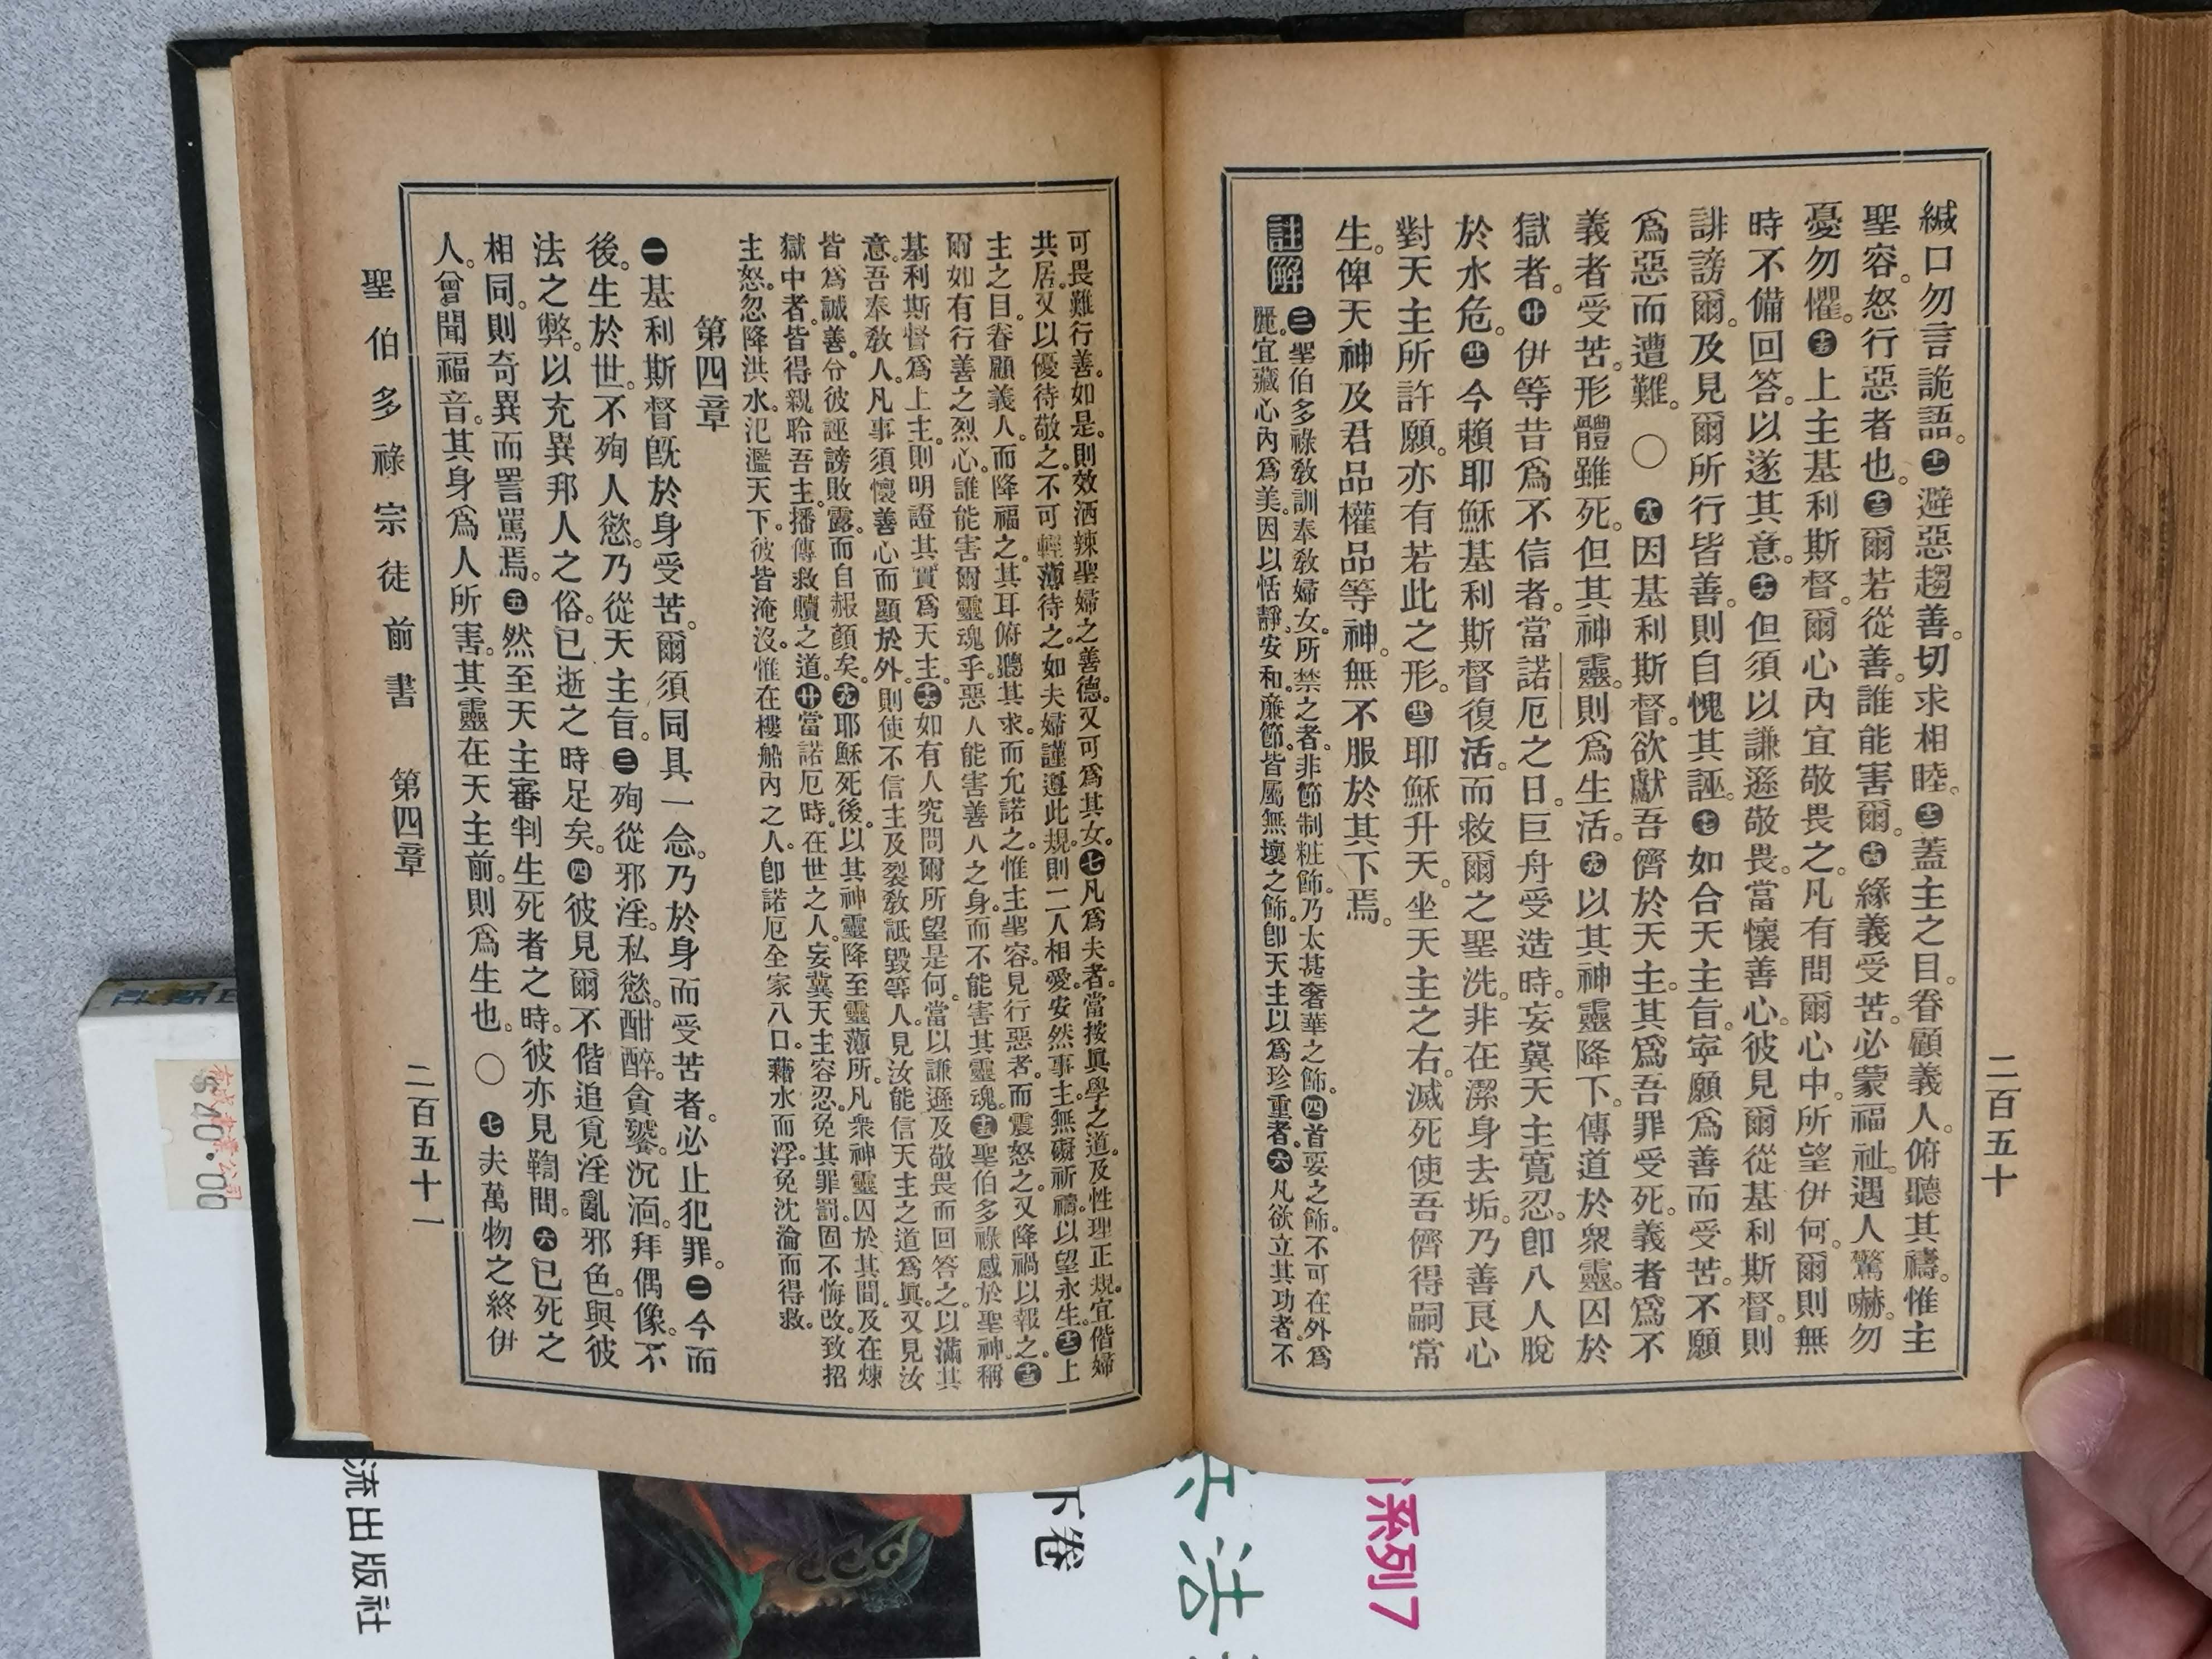 緘口勿言詭語。㈩㈠避惡趨善。切求相睦。㈩㈡蓋主之目。眷顧義人。俯聽其禱。惟主
聖容。怒行惡者也。㈩㈢爾若從善。誰能害爾。㈩㈣緣義受苦。必蒙福祉。遇人驚嚇。勿
憂勿懼。㈩㈤上主基利斯督。爾心內宜敬畏之。凡有問爾心中。所望伊何。爾則無
時不備回答。以遂其意。㈩㈥但須以謙遜敬畏。當懷善心。彼見爾從基利斯督。則
誹謗爾。及見爾所行皆善。則自愧其誣。㈩㈦如合天主旨。寧願為善而受苦。不願
為惡而遭難。〇㈩㈧因基利斯督。欲獻吾儕於天主。其為吾罪受死。義者為不
義者受苦。形體雖死。但其神靈。則為生活。㈩㈨以其神靈降下。傳道於衆靈。囚於
獄者。㈹伊等昔為不信者。當諾厄之日。巨舟受造時。妄冀天主寬忍。卽八人脫
於水危。㈹㈠今賴耶穌基利斯督復活。而救爾之聖洗。非在潔身去垢。乃善良心
對天主所許願。亦有若此之形。㈹㈡耶穌升天。坐天主之右。滅死使吾儕得嗣常
生。俾天神及君品權品等神。無不服於其下焉。
註解 ㈢聖伯多祿敎訓奉敎婦女。所禁之者。非節制粧飾。乃太甚奢華之飾。㈣首要之飾。不可在外為
麗。宜藏心內為美。因以恬靜。安和。廉節。皆屬無壞之飾。卽天主以為珍重者。㈥凡欲立其功者。不
二百五十
可畏難行善。如是。則效洒辣聖婦之善德。又可為其女。㈦凡為夫者。當按眞學之道。及性理正規。宜偕婦
共居。又以優待敬之。不可輕薄待之。如夫婦謹遵此規。則二人相愛。安然事主。無礙祈禱。以望永生。㈩㈡上
主之目。眷顧義人。而降福之。其耳俯聽其求。而允諾之。惟主聖容。見行惡者。而震怒之。又降禍以報之。㈩㈢
爾如有行善之烈心。誰能害爾靈魂乎。惡人能害善人之身。而不能害其靈魂。㈩㈤聖伯多祿感於聖神。稱
基利斯督為上主。則明證其實為天主。㈩㈥如有人究問爾所望是何。當以謙遜及敬畏而回答之。以滿其
意。吾奉敎人。凡事須懷善心而顯於外。則使不信主及裂敎詆毀等人。見汝能信天主之道為眞。又見汝
皆為誠善。令彼誣謗敗露。而自赧顏矣。㈩㈨耶穌死後。以其神靈降至靈薄所。凡衆神靈囚於其間。及在煉
獄中者。皆得親聆吾主。播傳救贖之道。㈹當諾厄時。在世之人。妄冀天主容忍。免其罪罰。固不悔改。致招
主怒。忽降洪水。氾濫天下。彼皆淹沒。惟在樓船內之人。卽諾厄全家八口。藉水而浮。免沈淪而得救。
第四章
㈠基利斯督旣於身受苦。爾須同具一念。乃於身而受苦者。必止犯罪。㈡今而
後。生於世。不殉人慾。乃從天主旨。㈢殉從邪淫。私慾。酣醉。貪饕。沉湎。拜偶像。不
法之弊。以充異邦人之俗。已逝之時足矣。㈣彼見爾不偕追覓淫亂邪色。與彼
相同。則奇異而詈罵焉。㈤然至天主審判生死者之時。彼亦見鞫問。㈥已死之
人。曾聞福音。其身為人所害。其靈在天主前。則為生也。〇㈦夫萬物之終伊
聖伯多祿宗徒前書 第四章 二百五十一
$40.00
流出版社
下卷
活
系列7